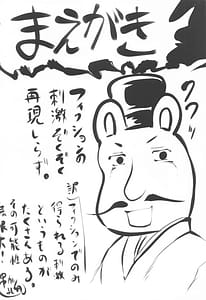 まえがき
フィクションの
刺激ぞくぞく
再現しらず。
訳 フィクションでのみ
得られる刺激
というものが
たくさんある。
その可能性
無限大!